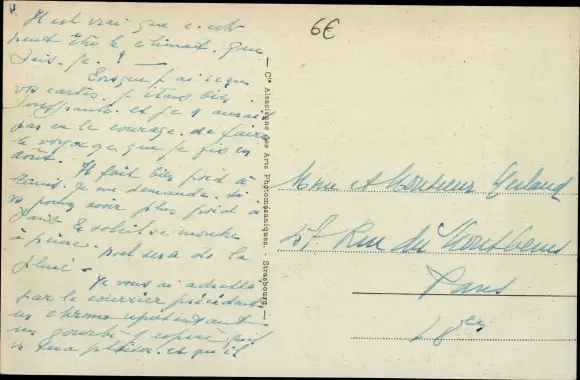 Il est vrai que c'est
peut être le climat. que
sais-je ? —
Lorsque j'ai reçu
vos cartes. j'étais bien
souffrante. et je n'aurais
pas eu le courage. de faire
le voyage que je fis en
août. Il fait bien froid à
. Je me demande. si
vs pouvez avoir plus froid à
Paris le soleil se montre
à peine. Noël sera de la
pluie -
Je vous ai adressé
par le courrier précédent
un chromo représentant
un gourbi. j'espère qu'il
vs fera plaisir. et qu'il
6€
— Cie Alsacienne des Arts Photomécaniques. - Strasbourg. —
Mme et Monsieur
47 Rue du
Paris
18e